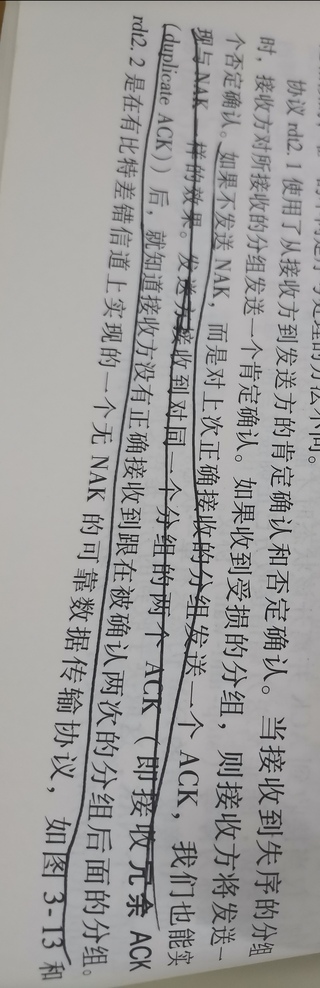 处理的方法不同。
协议 rdt2.1 使用了从接收方到发送方的肯定确认和否定确认。当接收到失序的分组
时，接收方对所接收的分组发送一个肯定确认。如果收到受损的分组，则接收方将发送一
个否定确认。如果不发送 NAK，而是对上次正确接收的分组发送一个 ACK，我们也能实
现与 NAK 一样的效果。发送方接收到对同一个分组的两个 ACK（即接收冗余 ACK
（duplicate ACK））后，就知道接收方没有正确接收到跟在被确认两次的分组后面的分组。
rdt2.2 是在有比特差错信道上实现的一个无 NAK 的可靠数据传输协议，如图 3-13 和